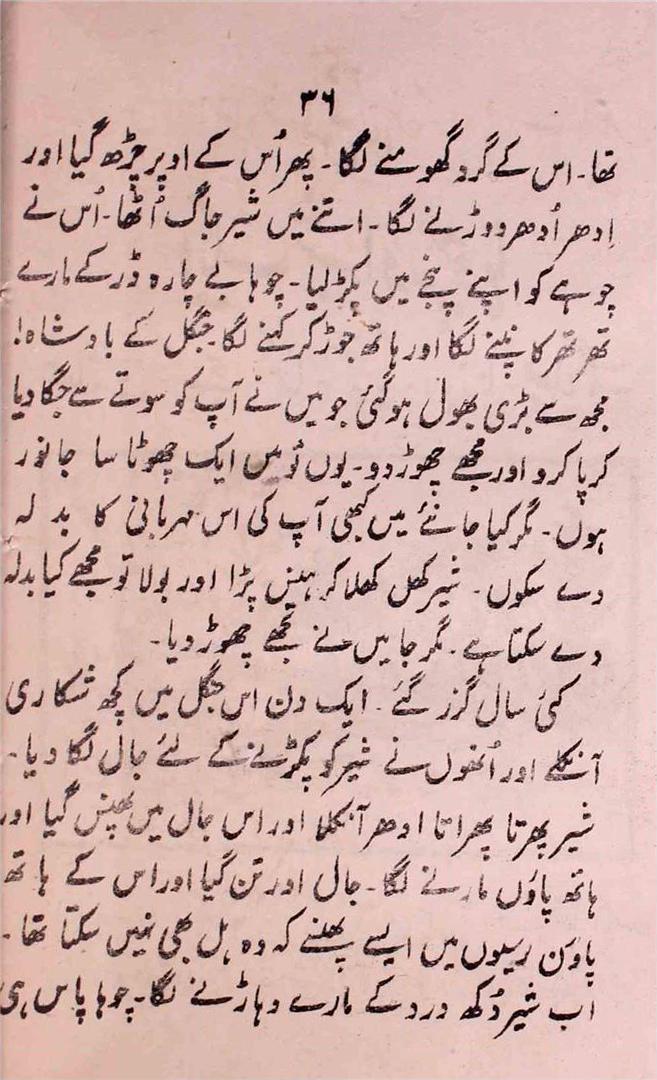 ۳۶
تھا۔ اس کے گرد گھومنے لگا۔ پھر اُس کے اوپر چڑھ گیا اور
اِدھر اُدھر دوڑنے لگا۔ اتنے میں شیر جاگ اُٹھا۔ اُس نے
چوہے کو اپنے پنجے میں پکڑ لیا۔ چوہا بے چارہ ڈر کے مارے
تھر تھر کانپنے لگا اور ہاتھ جوڑ کر کہنے لگا۔ جنگل کے بادشاہ!
مجھ سے بڑی بھول ہو گئی جو میں نے آپ کو سوتے سے جگا دیا
کرپا کرو اور مجھے چھوڑ دو۔ یوں تو میں ایک چھوٹا سا جانور
ہوں۔ مگر کیا جانئے میں کبھی آپ کی اس مہربانی کا بدلہ
دے سکوں۔ شیر کھل کھلا کر ہنس پڑا اور بولا تو مجھے کیا بدلہ
دے سکتا ہے۔ مگر جا میں نے تجھے چھوڑ دیا۔
کئی سال گزر گئے۔ ایک دن اس جنگل میں کچھ شکاری
آنکلے اور اُنھوں نے شیر کو پکڑنے کے لئے جال لگا دیا۔
شیر پھرتا پھراتا ادھر آنکلا اور اس جال میں پھنس گیا اور
ہاتھ پاؤں مارنے لگا۔ جال اور تن گیا اور اس کے ہاتھ
پاوں رسیوں میں ایسے پھنسے کہ وہ ہل بھی نہیں سکتا تھا۔
اب شیر دُکھ درد کے مارے دہاڑنے لگا۔ چوہا پاس ہی